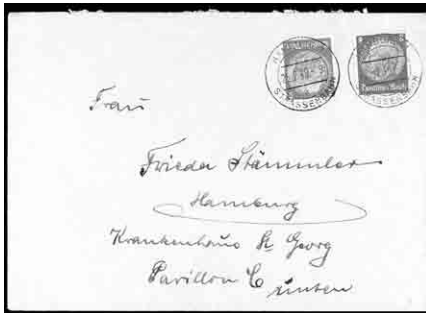 STRASSENBAHN
STRASSENBAHN
Frau
Frieda Stämmler
Hamburg
Krankenhaus St. Georg
Pavillon C unten